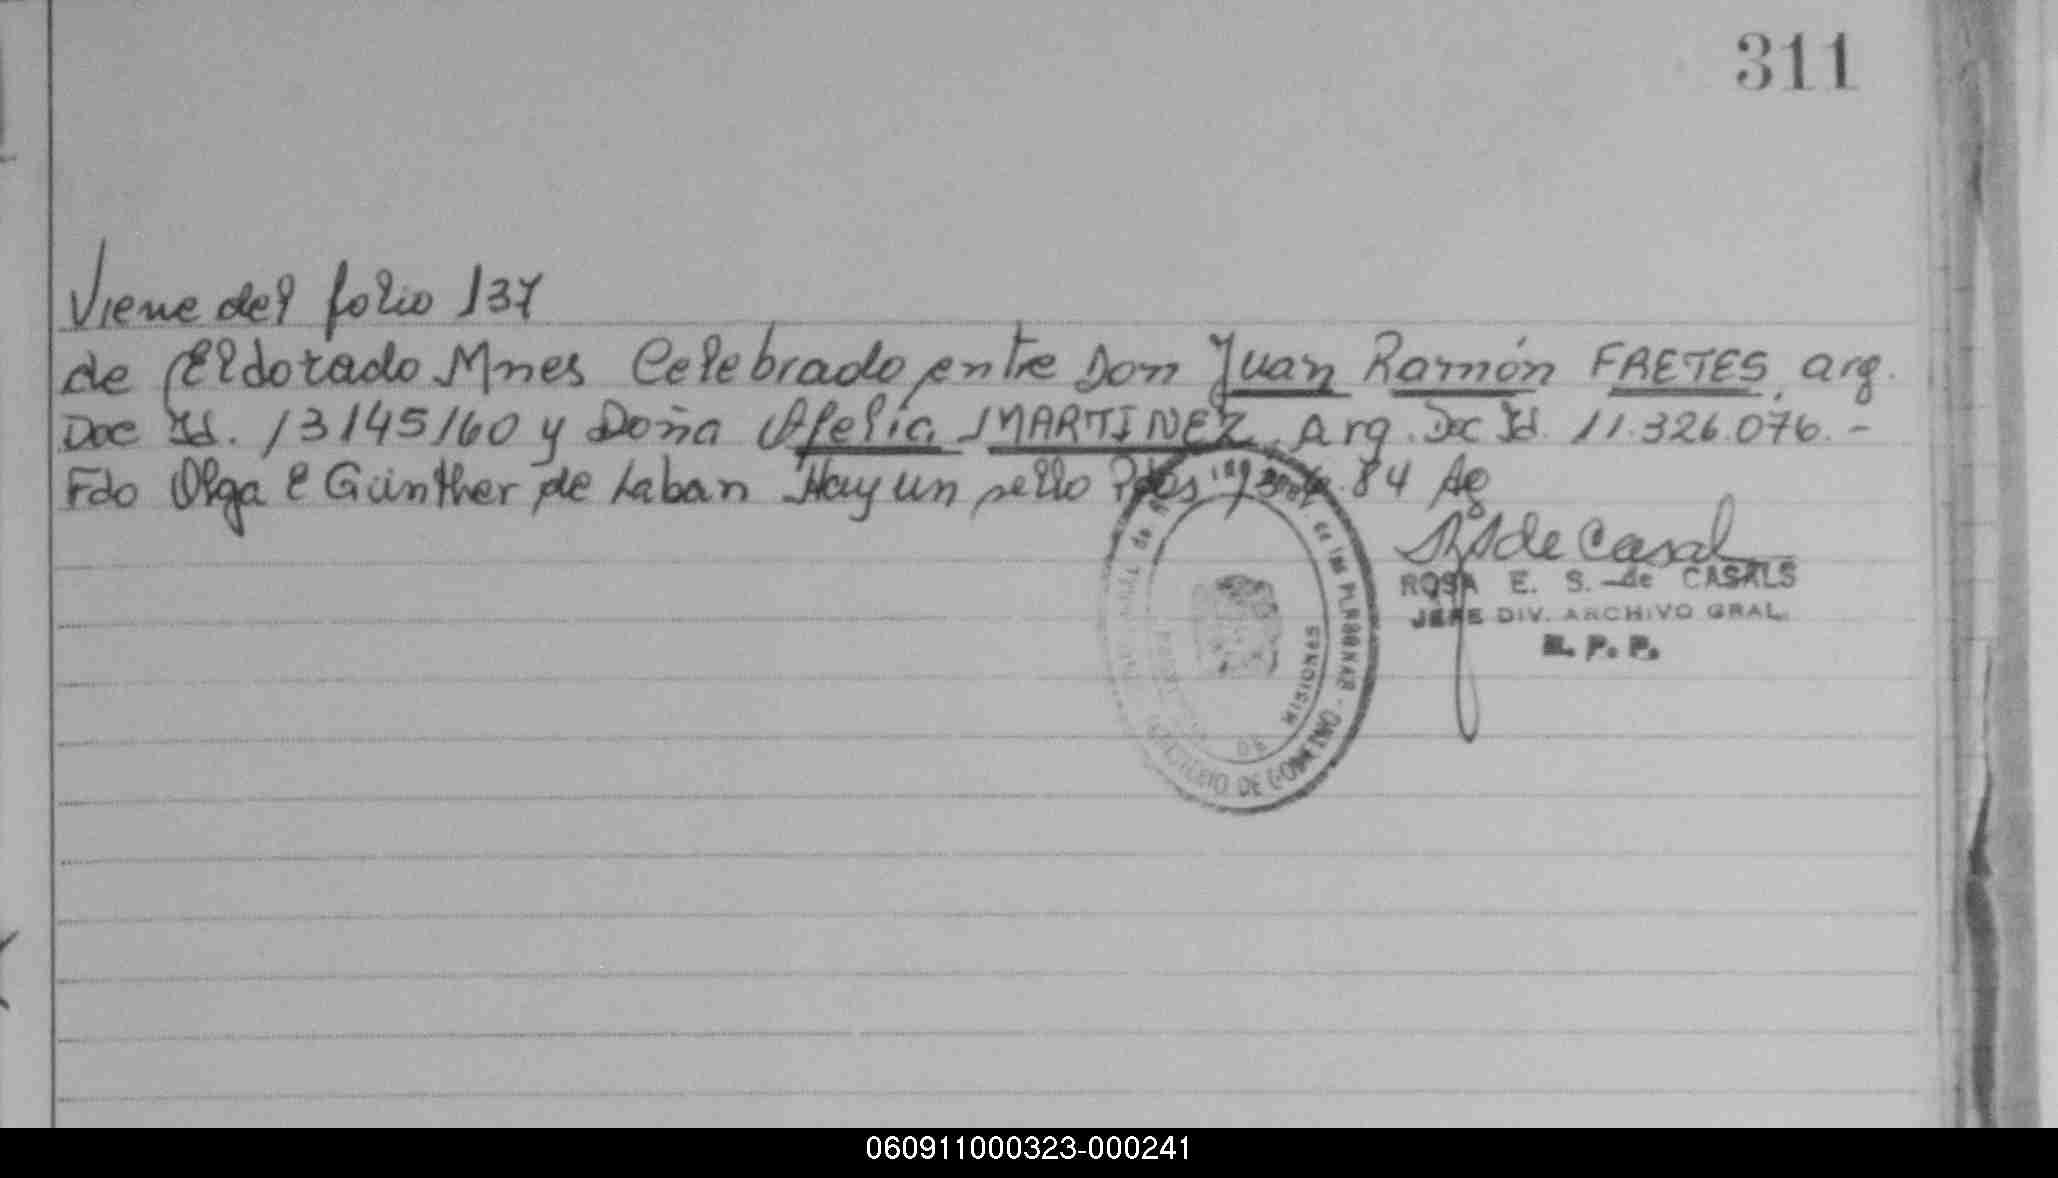 311
Viene del folio 137
de Eldorado Mnes Celebrado entre Don Juan Ramón FRETES, arg.
Doc Id. 13145160 y Doña Ofelia MARTINEZ, Arg. Doc Id. 11.326.076.-
Fdo Olga E Günther de Laban Hay un sello 84
de Casal
ROSA E. S. de CASALS
JEFE DIV. ARCHIVO GRAL.
R. P. P.
de las PERSONAS - MINISTERIO DE GOBIERNO
DE MISIONES
060911000323-000241